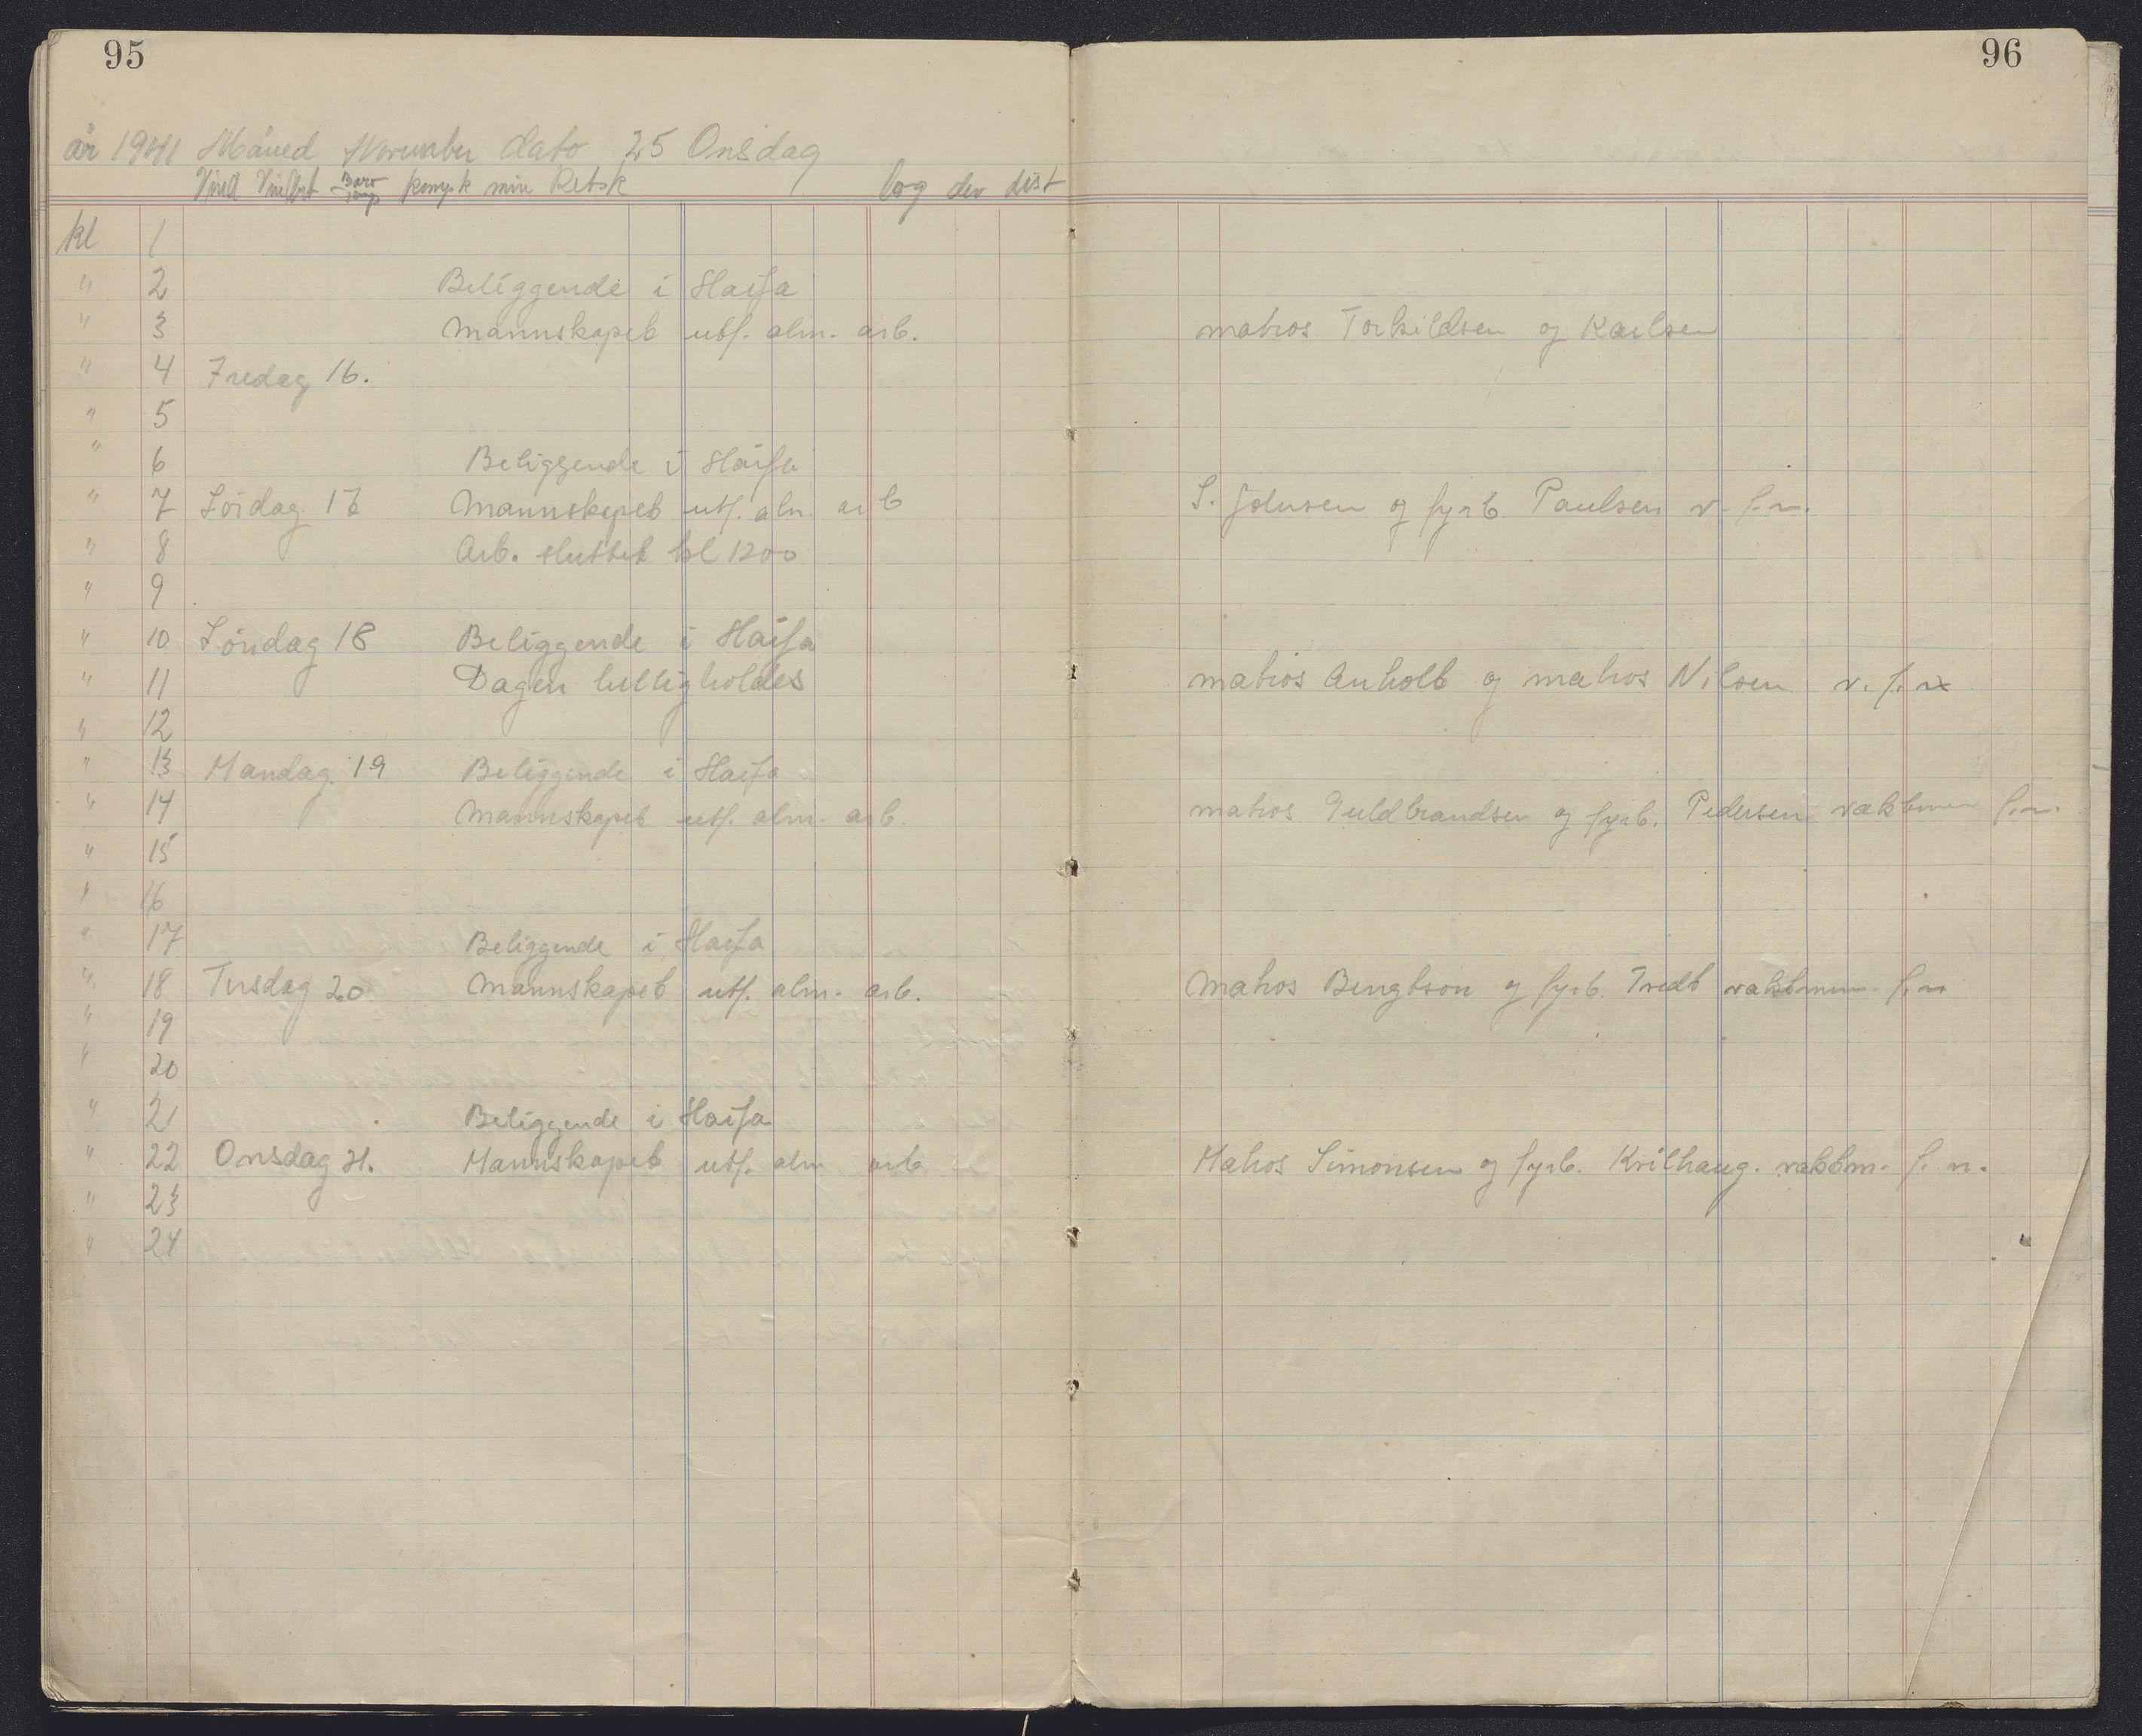 95
96
år 1941 Måned November dato 25 Onsdag
Vind Baro Temp komp k min Retsk log dev dist
kl 1
" 2 Beliggende i Haifa
" 3 Mannskapet utf. alm. arb. matros Torkildsen og Karlsen
" 4 Fredag 16.
" 5
" 6 Beliggende i Haifa
" 7 Lördag 17 Mannskapet utf. alm. arb S. Johnsen og fyrb. Paulsen v. f. n.
" 8 Arb. sluttet kl 1200
" 9
" 10 Söndag 18 Beliggende i Haifa
" 11 Dagen helligholdes matros Anholt og matros Nilsen v. f. n
" 12
" 13 Mandag 19 Beliggende i Haifa
" 14 Mannskapet utf. alm. arb. matros Guldbrandsen og fyrb. Pedersen vaktmen f.n.
" 15
" 16
" 17 Beliggende i Haifa
" 18 Tirsdag 20 Mannskapet utf. alm. arb. Matros Bengtson og fyrb. Tvedt vaktmen f.n
" 19
" 20
" 21 Beliggende i Haifa
" 22 Onsdag 21. Mannskapet utf. alm arb Matros Simonsen og fyrb. Kvilhaug. vaktm. f. n.
" 23
" 24